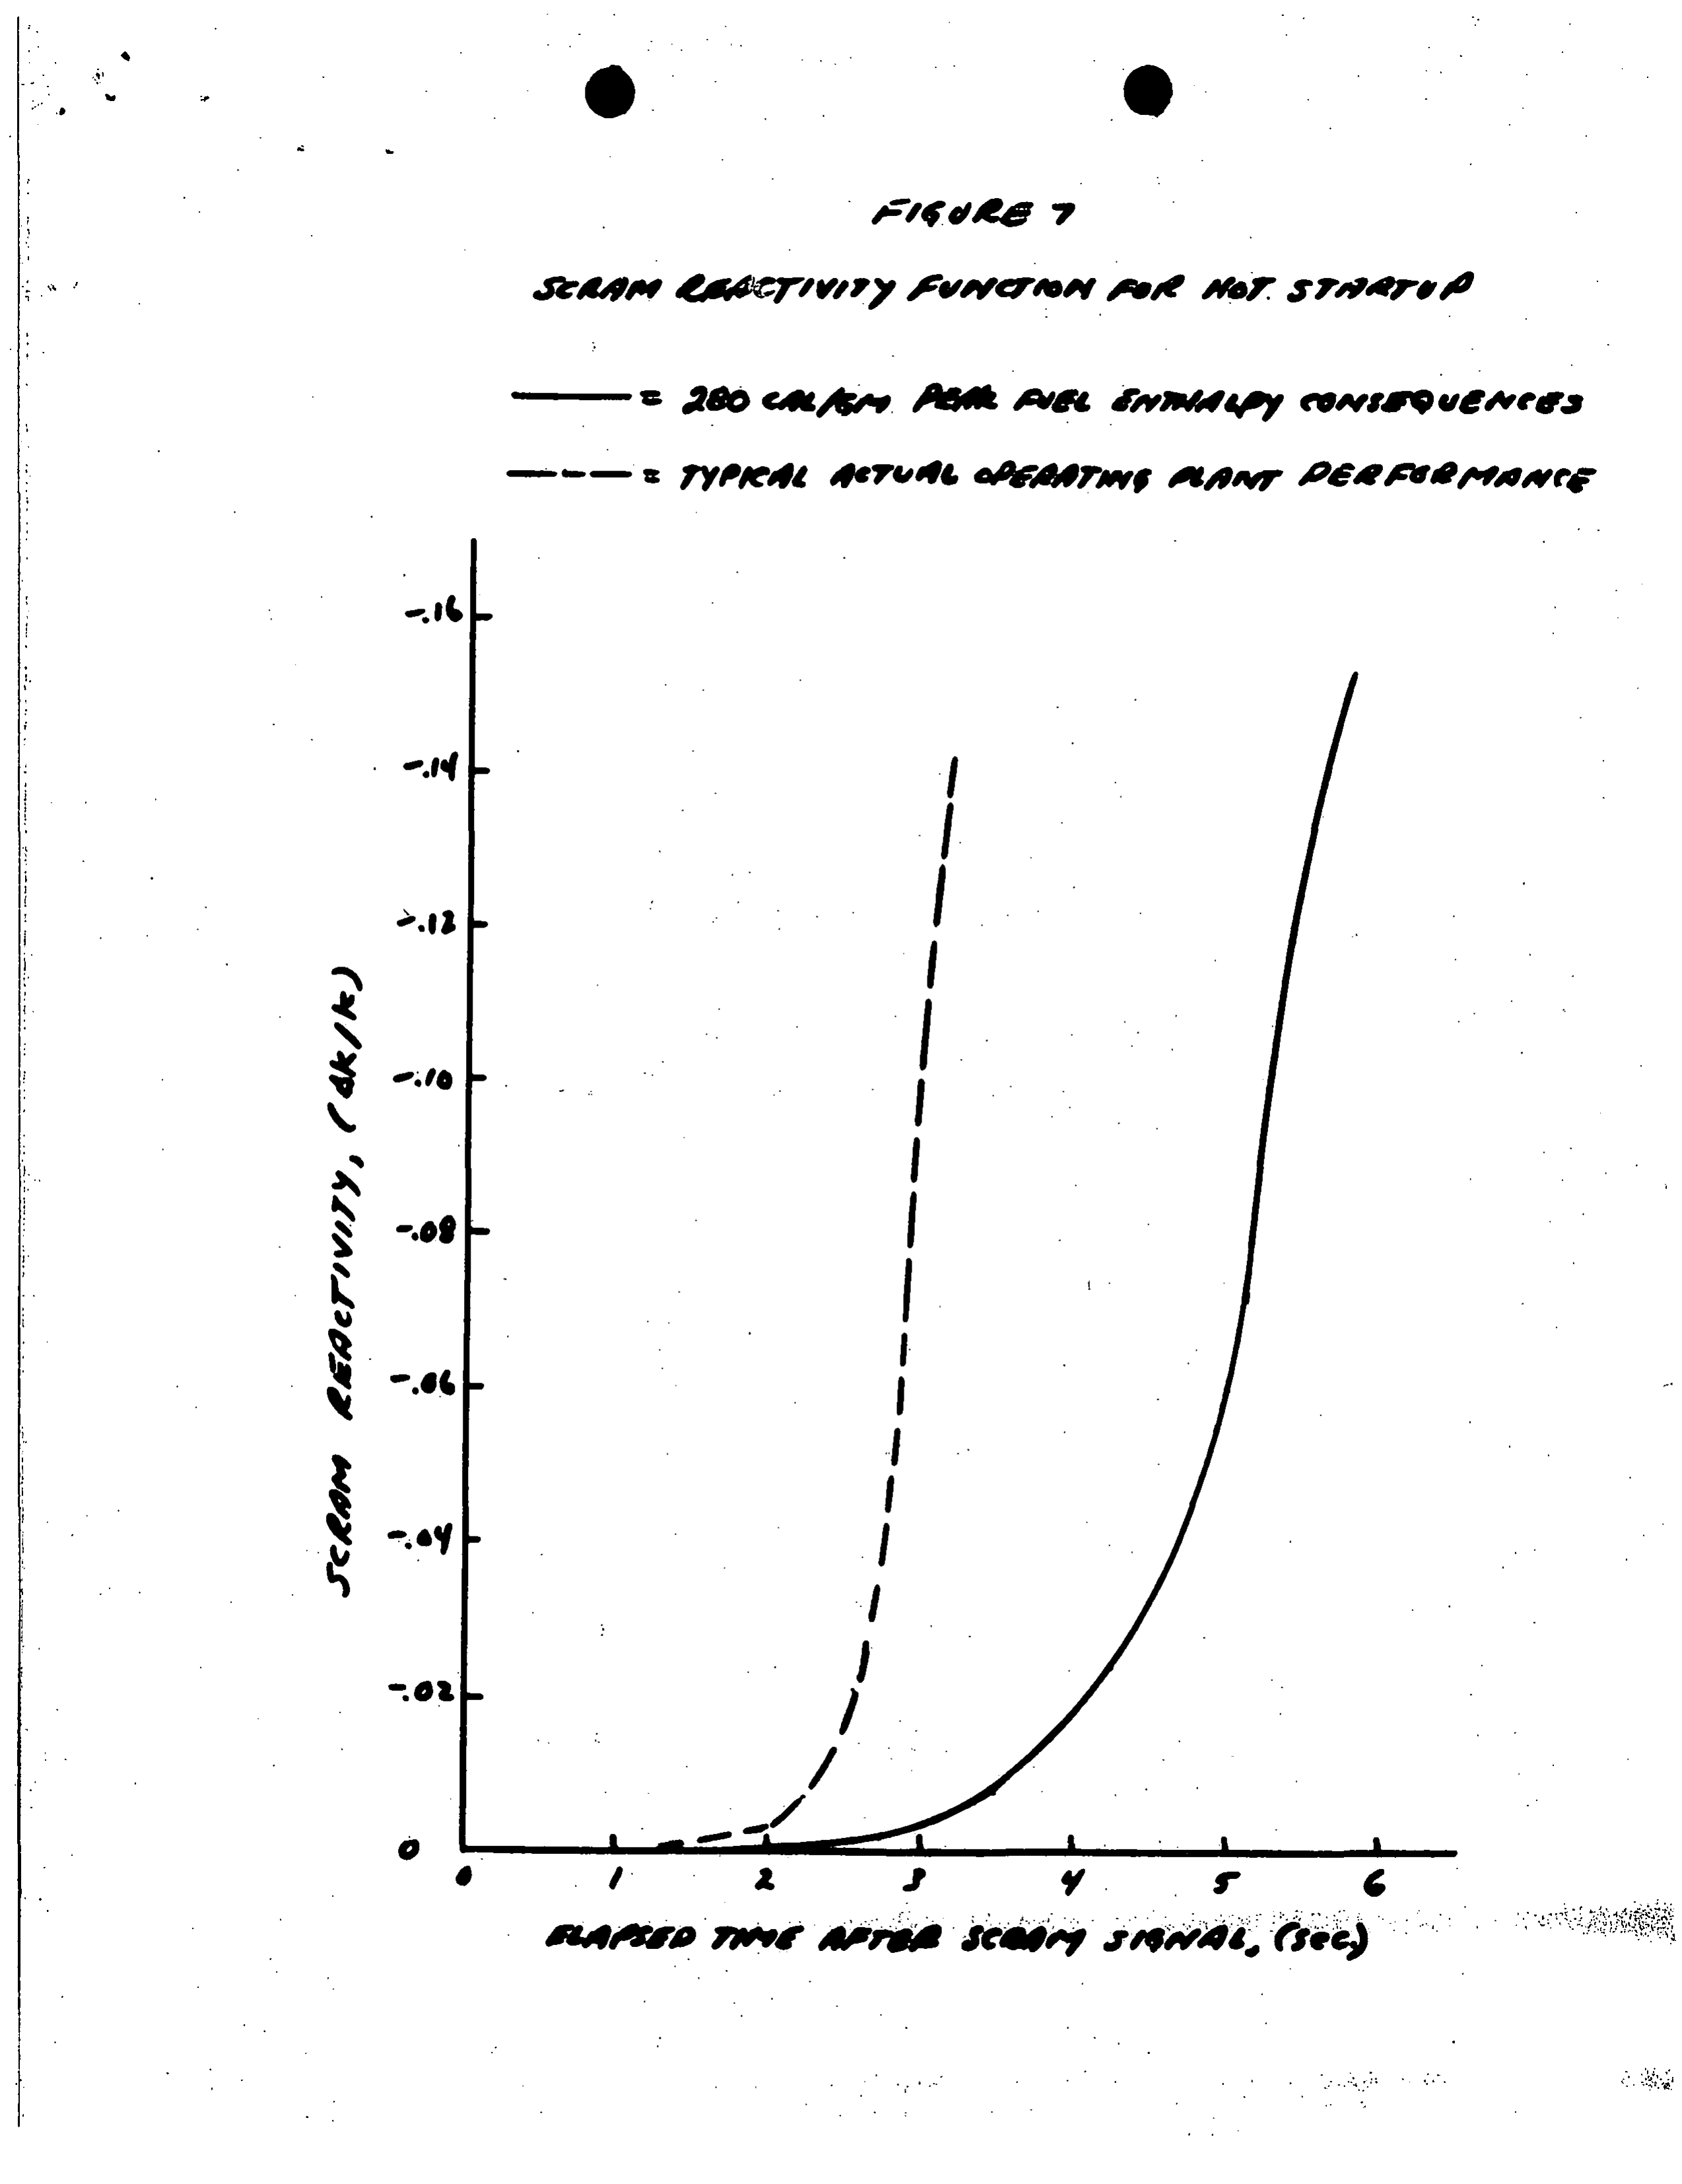 FIGURE 7
SCRAM REACTIVITY FUNCTION FOR HOT STARTUP
= 280 CAL/GM PEAK FUEL ENTHALPY CONSEQUENCES
= TYPICAL ACTUAL OPERATING PLANT PERFORMANCE
-.16
-.14
-.12
-.10
-.08
-.06
-.04
-.02
0
SCRAM REACTIVITY, (Δk/k)
0 1 2 3 4 5 6
ELAPSED TIME AFTER SCRAM SIGNAL, (SEC.)